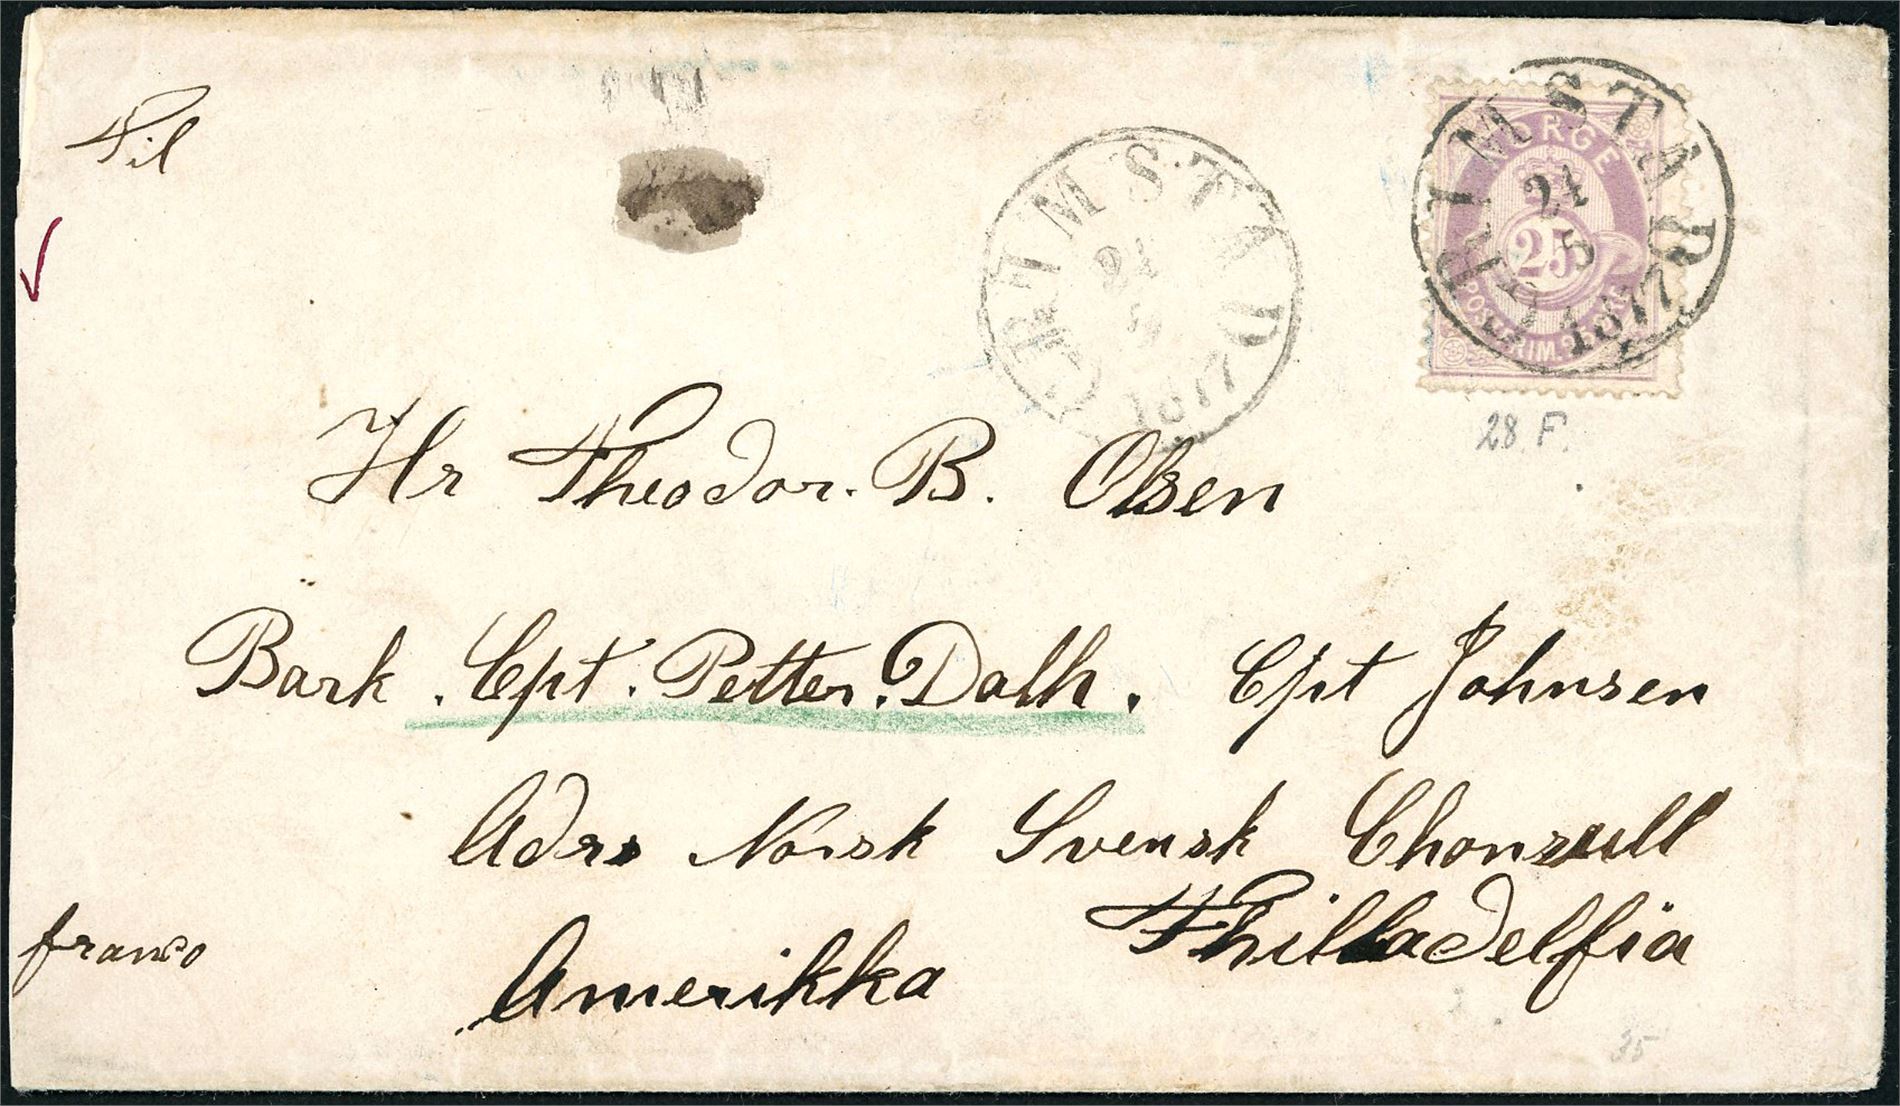 Til
GRIMSTAD
24
5
1877
NORGE
25
POSTFRIM. 25 ØRE
GRIMSTAD
24
5
1877
28 F.
Hr Theodor. B. Olsen
Bark. Cpt. Petter. Dalh. Cpt Johnsen
Adrs Norsk Svensk Chonsull
Philladelfia
franco
Amerikka
35